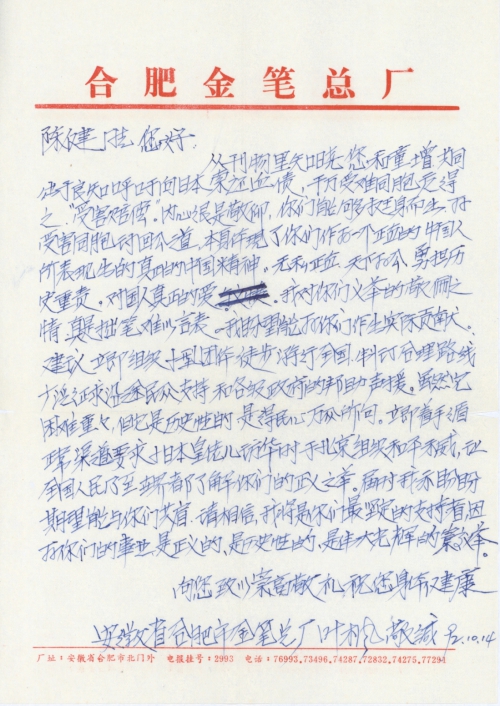 合肥金笔总厂
陈健同志您好
从刊物里知晓您和童增共同
出于良知呼吁向日本索还血债，千万受难同胞定得
之"受害赔偿"内心很是敬仰，你们能够挺身而出，为
受害同胞讨回公道，本身体现了你们作为一个正直的中国人
所表现出的真正的中国精神，无私正直，天下为公，勇担历
史重责，对国人真正的爱 我对你们义举的敬佩之
情真是拙笔难以言表。我盼望能为你们作出实际贡献
建议立即组织小型团体徒步游行全国，制订合理路线
广泛征求沿途民众支持和各级政府的帮助声援。虽然它
困难重重，但它是历史性的是得民心万众所向。立即着手循
正常渠道要求于日本皇佬儿访华时于北京组织和平示威，让
全国人民乃至世界都了解你们的正义之举。届时我亦盼望
期望能与你们共赴，请相信，我将是你们最坚定的支持者因
为你们的事业是正义的，是历史性的，是伟大光辉的
向您致以崇高敬礼 祝您身体健康
安徽省合肥市金笔总厂叶 敬诚 92.10.14
厂址：安徽省合肥市北门外 电报挂号：2993 电话：76993,73496,74287,72832,74275,77294